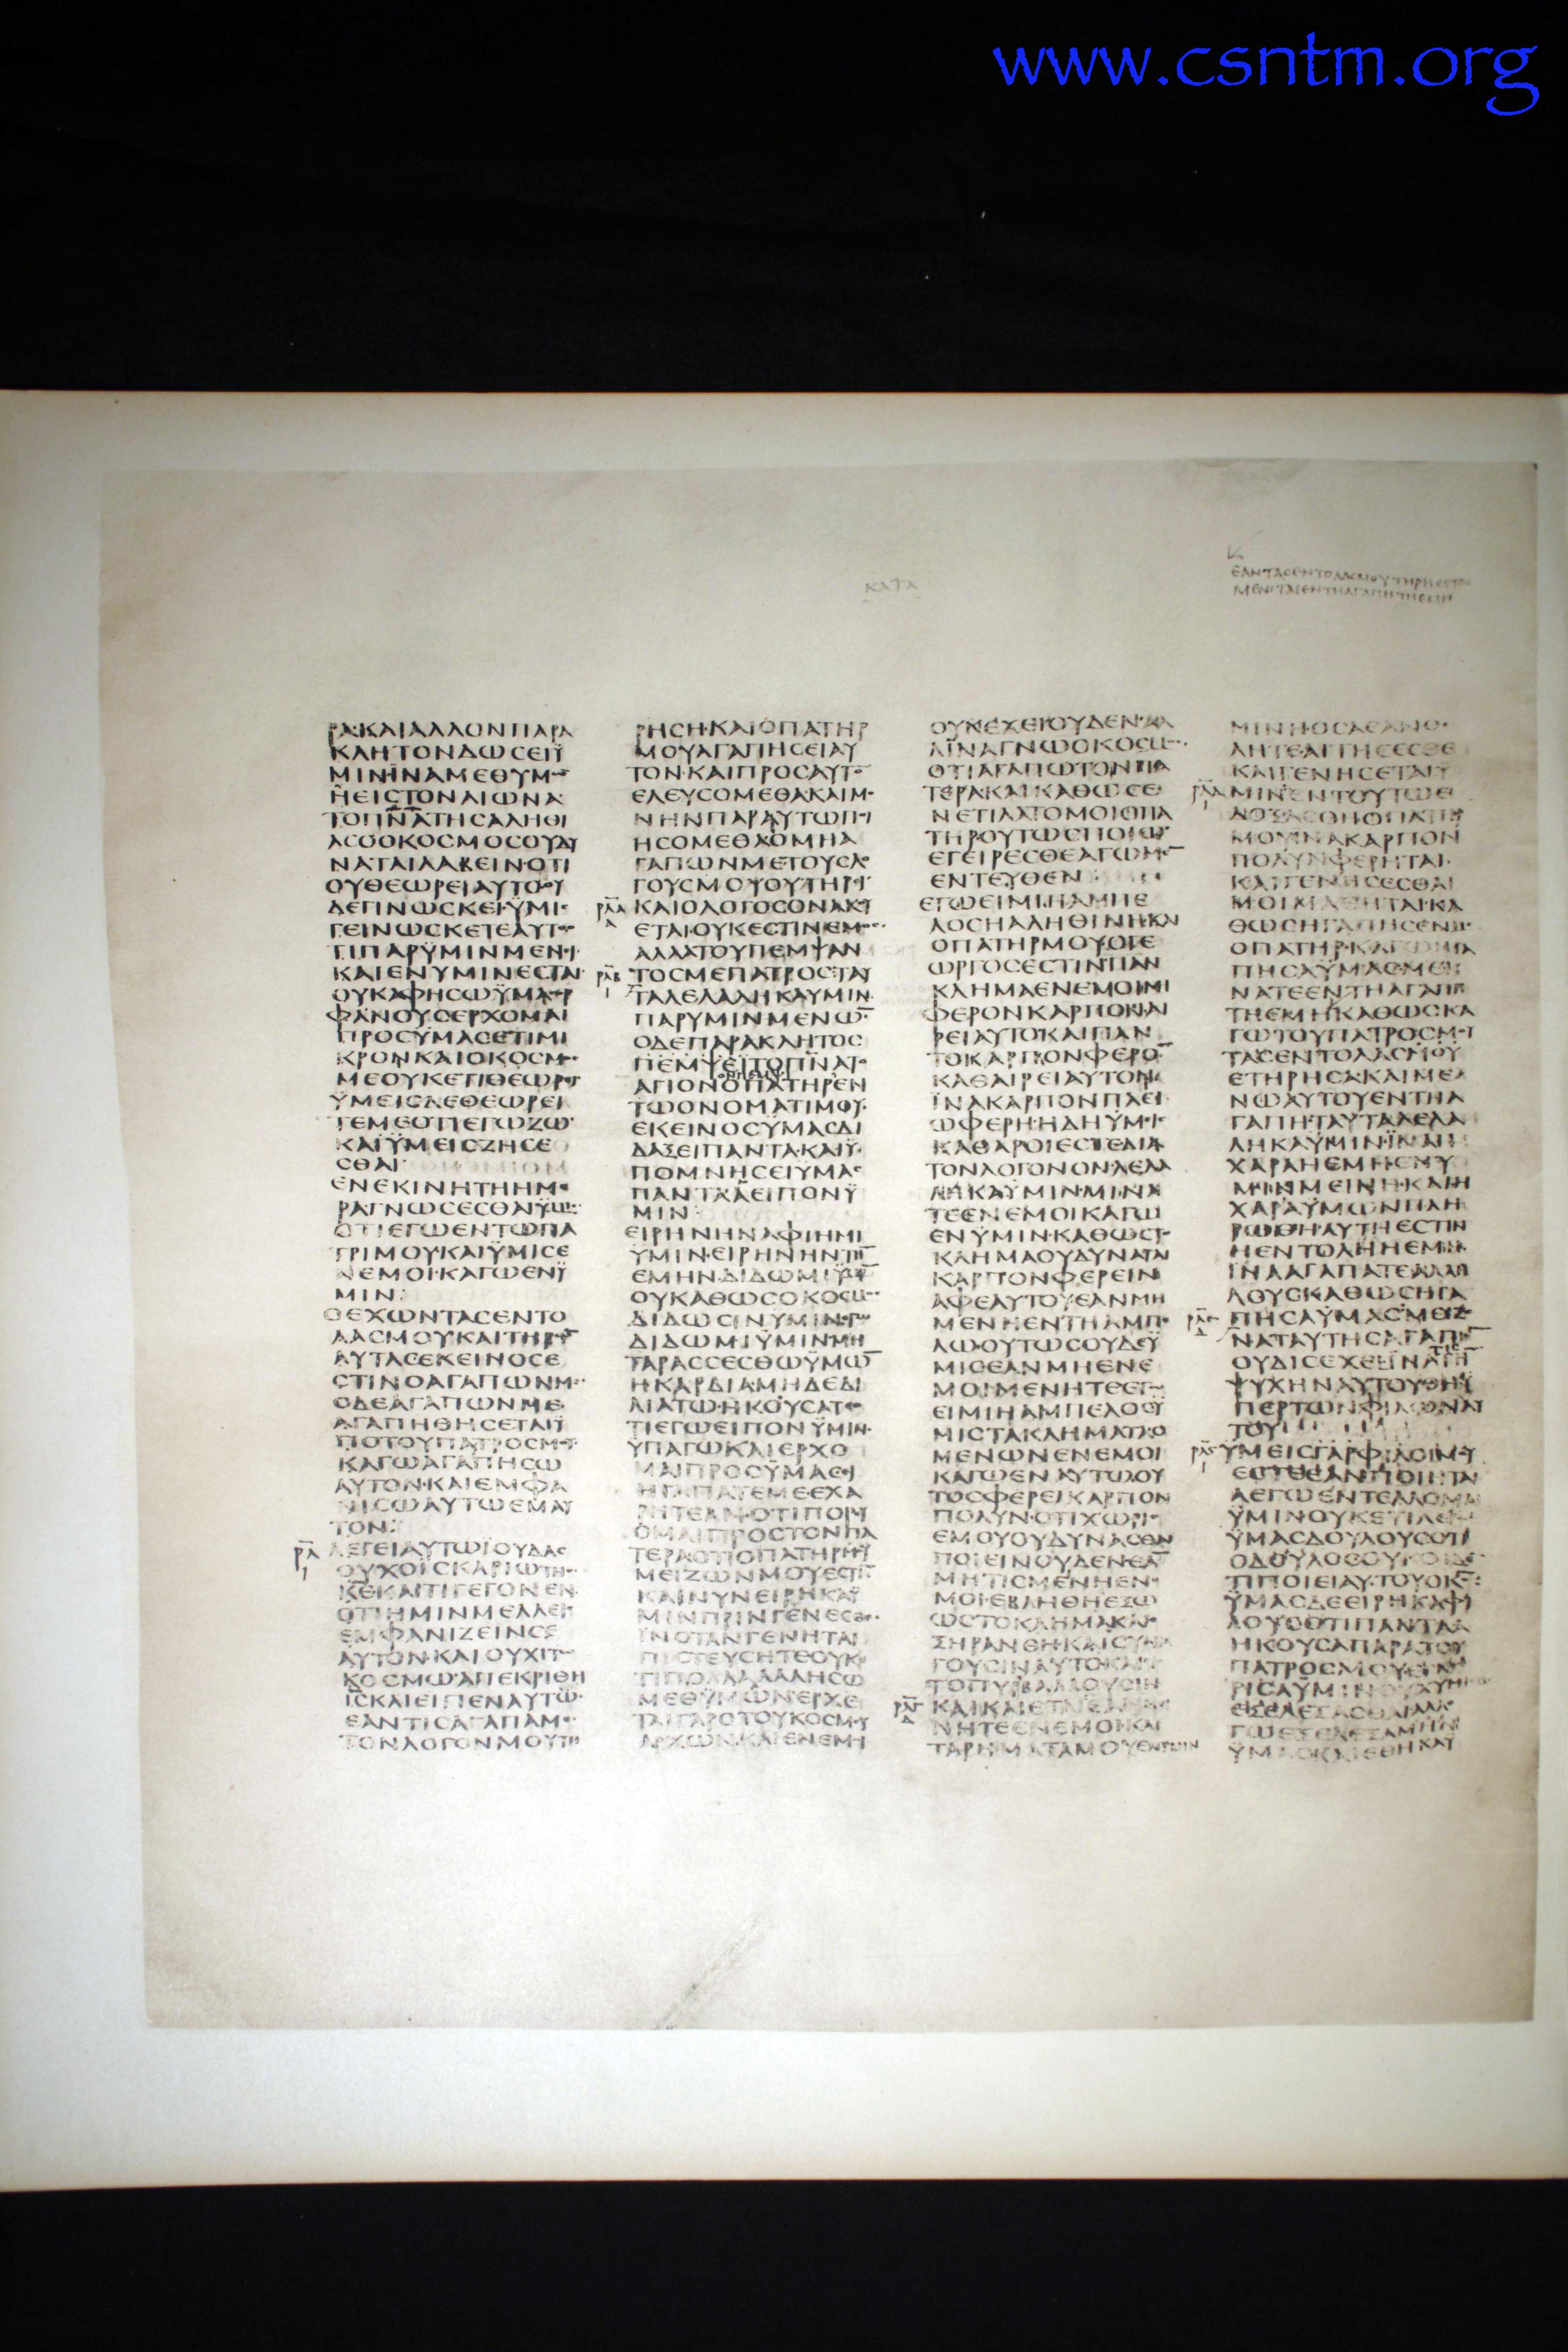 www.csntm.org
ΚΑΤΑ
ΕΑΝΤΑСΕΝΤΟΛΑСΜΟΥΤΗΡΗСΗΤΕ
ΜΕΝΙΤΑΙΕΝΤΗΑΓΑΠΗΤΗΕΜΗ
ΡΑ·ΚΑΙΑΛΛΟΝΠΑΡΑ
ΚΛΗΤΟΝΔΩСΕΙΫ
ΜΙΝ·ΪΝΑΜΕΘΥΜΩ
ΗΕΙСΤΟΝΑΙΩΝΑ
ΤΟΠΝΑΤΗСΑΛΗΘΙ
ΑСΟΟΚΟСΜΟСΟΥΔΥ
ΝΑΤΑΙΛΑΒΕΙΝ·ΟΤΙ
ΟΥΘΕΩΡΕΙΑΥΤΟΟΥ
ΔΕΓΙΝΩСΚΕΙΫΜΙС
ΓΕΙΝΩСΚΕΤΕΑΥΤΟ
ΤΙΠΑΡΫΜΙΝΜΕΝΙ
ΚΑΙΕΝΥΜΙΝΕСΤΑΙ
ΟΥΚΑΦΗСΩΫΜΑСΡ
ΦΑΝΟΥСΕΡΧΟΜΑΙ
ΠΡΟСΫΜΑСΕΤΙΜΙ
ΚΡΟΝΚΑΙΟΚΟСΜΟС
ΜΕΟΥΚΕΤΙΘΕΩΡΕΙ
ΫΜΕΙСΔΕΘΕΩΡΕΙ
ΤΕΜΕΟΤΙΕΓΩΖΩ
ΚΑΙΫΜΕΙСΖΗСΕ
СΘΑΙ
ΕΝΕΚΙΝΗΤΗΗΜΕ
ΡΑΓΝΩСΕСΘΑΫΜΙС
ΟΤΙΕΓΩΕΝΤΩΠΑ
ΤΡΙΜΟΥΚΑΙΫΜΙСΕ
ΝΕΜΟΙ·ΚΑΓΩΕΝΫ
ΜΙΝ:
ΟΕΧΩΝΤΑСΕΝΤΟ
ΛΑСΜΟΥΚΑΙΤΗΡΩ
ΑΥΤΑСΕΚΕΙΝΟСΕ
СΤΙΝΟΑΓΑΠΩΝΜΕ
ΟΔΕΑΓΑΠΩΝΜΕ
ΑΓΑΠΗΘΗСΕΤΑΙΫ
ΠΟΤΟΥΠΑΤΡΟСΜΟΥ
ΚΑΓΩΑΓΑΠΗСΩ
ΑΥΤΟΝ·ΚΑΙΕΜΦΑ
ΝΙСΩΑΥΤΩΕΜΑΥ
ΤΟΝ:
ΛΕΓΕΙΑΥΤΩΪΟΥΔΑС
ΟΥΧΟΪСΚΑΡΙΩΤΗС
ΚΕΚΑΙΤΙΓΕΓΟΝΕΝ
ΟΤΙΗΜΙΝΜΕΛΛΕΙС
ΕΜΦΑΝΙΖΕΙΝСΕ
ΑΥΤΟΝ·ΚΑΙΟΥΧΙΤΩ
ΚΟСΜΩ·ΑΠΕΚΡΙΘΗ
ΙСΚΑΙΕΙΠΕΝΑΥΤΩ
ΕΑΝΤΙСΑΓΑΠΑΜΕ
ΤΟΝΛΟΓΟΝΜΟΥΤΗ
ΡΗСΗ·ΚΑΙΟΠΑΤΗΡ
ΜΟΥΑΓΑΠΗСΕΙΑΥ
ΤΟΝ·ΚΑΙΠΡΟСΑΥΤΟ
ΕΛΕΥСΟΜΕΘΑΚΑΙΜΟ
ΝΗΝΠΑΡΑΥΤΩΠΟΙ
ΗСΟΜΕΘΑΟΜΗΑ
ΓΑΠΩΝΜΕΤΟΥСΛΟ
ΓΟΥСΜΟΥΟΥΤΗΡΙ
ΚΑΙΟΛΟΓΟСΟΝΑΚΟΥ
ΕΤΑΙ·ΟΥΚΕСΤΙΝΕΜΟС
ΑΛΛΑΤΟΥΠΕΜΨΑΝ
ΤΟСΜΕΠΑΤΡΟСΤΑΥ
ΤΑΛΕΛΑΛΗΚΑΥΜΙΝ
ΠΑΡΥΜΙΝΜΕΝΩ
ΟΔΕΠΑΡΑΚΛΗΤΟС
ΠΕΜΨΕΙΤΟΠΝΑΤΟ
ΑΓΙΟΝΟΠΑΤΗΡΕΝ
ΤΩΟΝΟΜΑΤΙΜΟΥ
ΕΚΕΙΝΟСΫΜΑСΔΙ
ΔΑΞΕΙΠΑΝΤΑ·ΚΑΙΫ
ΠΟΜΝΗСΕΙΫΜΑС
ΠΑΝΤΑΑΕΙΠΟΝΫ
ΜΙΝ:
ΕΙΡΗΝΗΝΑΦΙΗΜΙ
ΫΜΙΝ·ΕΙΡΗΝΗΝΤΗ
ΕΜΗΝ·ΔΙΔΩΜΙΫΜΙ
ΟΥΚΑΘΩСΟΚΟСΜΟС
ΔΙΔΩСΙΝΥΜΙΝ·ΕΓΩ
ΔΙΔΩΜΙΫΜΙΝ·ΜΗ
ΤΑΡΑССΕСΘΩΫΜΩ
ΗΚΑΡΔΙΑΜΗΔΕΔΙ
ΛΙΑΤΩ·ΗΚΟΥСΑΤΕΟ
ΤΙΕΓΩΕΙΠΟΝΫΜΙΝ
ΥΠΑΓΩΚΑΙΕΡΧΟ
ΜΑΙΠΡΟСΫΜΑСΕΙ
ΗΓΑΠΑΤΕΜΕΕΧΑ
ΡΗΤΕΑΝ·ΟΤΙΠΟΡΕΥ
ΟΜΑΙΠΡΟСΤΟΝΠΑ
ΤΕΡΑΟΤΙΟΠΑΤΗΡΜΟΥ
ΜΕΙΖΩΝΜΟΥΕСΤΙ
ΚΑΙΝΥΝΕΙΡΗΚΑΫ
ΜΙΝΠΡΙΝΓΕΝΕСΘΑΙ
ΪΝΟΤΑΝΓΕΝΗΤΑΙ
ΠΙСΤΕΥСΗΤΕΟΥΚΕ
ΤΙΠΟΛΛΑΛΑΛΗСΩ
ΜΕΘΫΜΩΝ·ΕΡΧΕ
ΤΑΙΓΑΡΟΤΟΥΚΟСΜΟΥ
ΑΡΧΩΝ·ΚΑΙΕΝΕΜΟΙ
ΟΥΚΕΧΕΙΟΥΔΕΝ·ΑΛ
ΛΪΝΑΓΝΩΟΚΟСΜΟС
ΟΤΙΑΓΑΠΩΤΟΝΠΑ
ΤΕΡΑΚΑΙΚΑΘΩСΕ
ΝΕΤΙΛΑΤΟΜΟΙΟΠΑ
ΤΗΡΟΥΤΩСΠΟΙΩ
ΕΓΕΙΡΕСΘΕΑΓΩΜΕ
ΕΝΤΕΥΘΕΝ
ΕΓΩΕΙΜΙ·ΗΑΜΠΕ
ΛΟСΗΑΛΗΘΙΝΗ·ΚΑΙ
ΟΠΑΤΗΡΜΟΥΟΓΕ
ΩΡΓΟСΕСΤΙΝΠΑΝ
ΚΛΗΜΑΕΝΕΜΟΙΜΗ
ΦΕΡΟΝΚΑΡΠΟΝΑΙ
ΡΕΙΑΥΤΟΚΑΙΠΑΝ
ΤΟΚΑΡΠΟΝΦΕΡΟ
ΚΑΘΑΙΡΕΙΑΥΤΟΝ
ΪΝΑΚΑΡΠΟΝΠΛΕΙ
ΩΦΕΡΗ·ΗΔΗΥΜΙС
ΚΑΘΑΡΟΙΕСΤΕΔΙΑ
ΤΟΝΛΟΓΟΝΟΝΛΕΛΑ
ΛΗΚΑΫΜΙΝ·ΜΙΝΑ
ΤΕΕΝΕΜΟΙΚΑΓΩ
ΕΝΫΜΙΝ·ΚΑΘΩСΤΟ
ΚΛΗΜΑΟΥΔΥΝΑΤΑΙ
ΚΑΡΠΟΝΦΕΡΕΙΝ
ΑΦΕΑΥΤΟΥΕΑΝΜΗ
ΜΕΝΗΕΝΤΗΑΜΠΕ
ΛΩ·ΟΥΤΩСΟΥΔΕΫ
ΜΙСΕΑΝΜΗΕΝΕ
ΜΟΙΜΕΝΗΤΕΕΓΩ
ΕΙΜΙΗΑΜΠΕΛΟСΫ
ΜΙСΤΑΚΛΗΜΑΤΑΟ
ΜΕΝΩΝΕΝΕΜΟΙ
ΚΑΓΩΕΝΑΥΤΩΟΥ
ΤΟСΦΕΡΕΙΚΑΡΠΟΝ
ΠΟΛΥΝ·ΟΤΙΧΩΡΙС
ΕΜΟΥΟΥΔΥΝΑСΘΑΙ
ΠΟΙΕΙΝΟΥΔΕΝΕΑ
ΜΗΤΙСΜΕΝΗΕΝΕ
ΜΟΙ·ΕΒΛΗΘΗΕΞΩ
ΩСΤΟΚΛΗΜΑΚΑΙΕ
ΞΗΡΑΝΘΗ·ΚΑΙСΥΝΑ
ΓΟΥСΙΝΑΥΤΟΚΑΙΕΙС
ΤΟΠΥΡΒΑΛΛΟΥСΙΝ
ΚΑΙΚΑΙΕΤΑΙ
ΝΗΤΕΕΝΕΜΟΙΚΑΙ
ΤΑΡΗΜΑΤΑΜΟΥΕΝΥΜΙΝ
ΜΙΝΗΟСΑΕΑΝΘΕ
ΛΗΤΕ·ΑΙΤΗСΕСΘΕ
ΚΑΙΓΕΝΗСΕΤΑΙΫ
ΜΙΝ·ΕΝΤΟΥΤΩΕ
ΔΟΞΑСΘΗΟΠΑΤΗΡ
ΜΟΥΪΝΑΚΑΡΠΟΝ
ΠΟΛΥΝΦΕΡΗΤΑΙ·
ΚΑΙΓΕΝΗСΕСΘΑΙ
ΜΟΙΜΑΘΗΤΑΙ·ΚΑ
ΘΩСΗΓΑΠΗСΕΝΜΕ
ΟΠΑΤΗΡ·ΚΑΓΩΗΓΑ
ΠΗСΑΫΜΑСΜΕΙ
ΝΑΤΕΕΝΤΗΑΓΑΠΗ
ΤΗΕΜΗΚΑΘΩСΚΑ
ΓΩΤΟΥΠΑΤΡΟСΜΟΥ
ΤΑСΕΝΤΟΛΑСΜΟΥ
ΕΤΗΡΗСΑ·ΚΑΙΜΕ
ΝΩΑΥΤΟΥΕΝΤΗΑ
ΓΑΠΗ·ΤΑΥΤΑΛΕΛΑ
ΛΗΚΑΫΜΙΝ·ΪΝΑΗ
ΧΑΡΑΗΕΜΗΕΝΫ
ΜΙΝΜΕΙΝΗ·ΚΑΙΗ
ΧΑΡΑΫΜΩΝΠΛΗ
ΡΩΘΗ·ΑΥΤΗΕСΤΙΝ
ΗΕΝΤΟΛΗΗΕΜΗ
ΪΝΑΑΓΑΠΑΤΕΑΛΛΗ
ΛΟΥСΚΑΘΩСΗΓΑ
ΠΗСΑΫΜΑСΜΕΙΖ
ΝΑΤΑΥΤΗСΑΓΑΠΗ
ΟΥΔΙСΕΧΕΙΪΝΑΤΗ
ΨΥΧΗΝΑΥΤΟΥΘΗΫ
ΠΕΡΤΩΝΦΙΛΩΝΑΥ
ΤΟΥ
ΫΜΕΙСΓΑΡΦΙΛΟΙΜΟΥ
ΕСΤΕΕΑΝΠΟΙΗΤΑΙ
ΑΕΓΩΕΝΤΕΛΛΟΜΑΙ
ΫΜΙΝΟΥΚΕΤΙΛΕΓΩ
ΫΜΑСΔΟΥΛΟΥСΟΤΙ
ΟΔΟΥΛΟСΟΥΚΟΙΔΕ
ΤΙΠΟΙΕΙΑΥΤΟΥΟΚС:
ΫΜΑСΔΕΕΙΡΗΚΑΦΙ
ΛΟΥСΟΤΙΠΑΝΤΑΑ
ΗΚΟΥСΑΠΑΡΑΤΟΥ
ΠΑΤΡΟСΜΟΥΕΓΝΩ
ΡΙСΑΫΜΙΝΟΥΧΥΜΙС